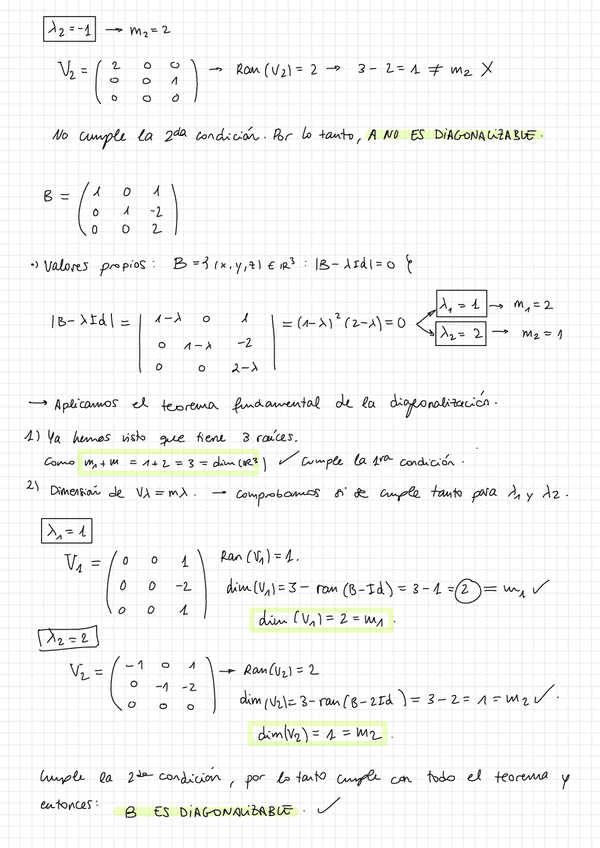 λ₂ = -1 → m₂ = 2
V₂ = ( 2 0 0 → Ran(V₂) = 2 → 3 - 2 = 1 ≠ m₂ X
0 0 1
0 0 0 )
No cumple la 2da condición. Por lo tanto, A NO ES DIAGONALIZABLE.
B = ( 1 0 1
0 1 -2
0 0 2 )
·) Valores propios: B = {(x, y, z) ∈ ℝ³ : |B - λId| = 0 }
|B - λId| = | 1-λ 0 1 | = (1-λ)² (2-λ) = 0 λ₁ = 1 → m₁ = 2
0 1-λ -2 λ₂ = 2 → m₂ = 1
0 0 2-λ
→ Aplicamos el teorema fundamental de la diagonalización.
1) Ya hemos visto que tiene 3 raíces.
Como m₁ + m = 1 + 2 = 3 = dim(ℝ³) ✓ Cumple la 1ra condición.
2) Dimensión de Vλ = mλ. → comprobamos si se cumple tanto para λ₁ y λ₂.
λ₁ = 1
V₁ = ( 0 0 1 Ran(V₁) = 1.
0 0 -2 dim(V₁) = 3 - ran(B - Id) = 3 - 1 = 2 = m₁ ✓
0 0 1 ) dim(V₁) = 2 = m₁.
λ₂ = 2
V₂ = ( -1 0 1 → Ran(V₂) = 2
0 -1 -2 dim(V₂) = 3 - ran(B - 2Id) = 3 - 2 = 1 = m₂ ✓.
0 0 0 ) dim(V₂) = 1 = m₂.
Cumple la 2da condición, por lo tanto cumple con todo el teorema y
entonces: B ES DIAGONALIZABLE. ✓